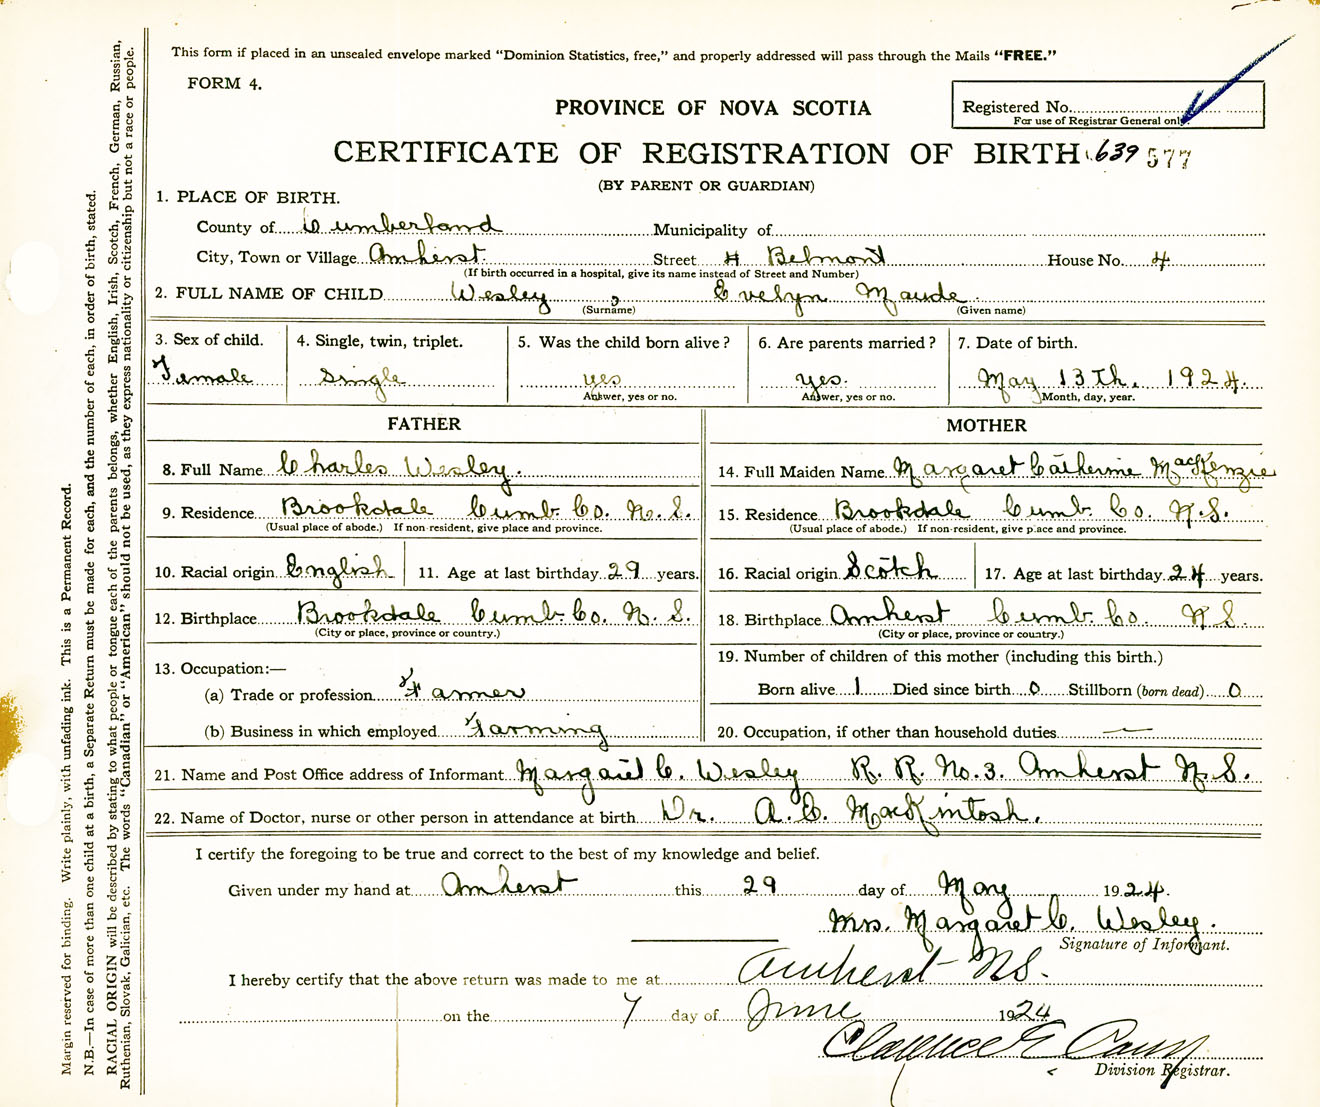 This form if placed in an unsealed envelope marked "Dominion Statistics, free," and properly addressed will pass through the Mails "FREE."
FORM 4.
PROVINCE OF NOVA SCOTIA
Registered No.
For use of Registrar General only.
CERTIFICATE OF REGISTRATION OF BIRTH 639 577
(BY PARENT OR GUARDIAN)
1. PLACE OF BIRTH.
County of Cumberland Municipality of
City, Town or Village Amherst. Street 4 Belmont House No. 4
(If birth occurred in a hospital, give its name instead of Street and Number)
2. FULL NAME OF CHILD Wesley, Evelyn Maude.
(Surname) (Given name)
3. Sex of child. 4. Single, twin, triplet. 5. Was the child born alive? 6. Are parents married? 7. Date of birth.
Female single yes yes. May 13Th. 1924.
Answer, yes or no. Answer, yes or no. Month, day, year.
FATHER MOTHER
8. Full Name Charles Wesley. 14. Full Maiden Name Margaret Catherine MacKenzie
9. Residence Brookdale Cumb. Co. N. S. 15. Residence Brookdale Cumb. Co. N.S.
(Usual place of abode.) If non-resident, give place and province. (Usual place of abode.) If non-resident, give place and province.
10. Racial origin English 11. Age at last birthday 29 years. 16. Racial origin Scotch 17. Age at last birthday 24 years.
12. Birthplace Brookdale Cumb. Co. N. S. 18. Birthplace Amherst Cumb. Co. N.S.
(City or place, province or country.) (City or place, province or country.)
13. Occupation:— 19. Number of children of this mother (including this birth.)
(a) Trade or profession Farmer Born alive 1 Died since birth 0 Stillborn (born dead) 0
(b) Business in which employed Farming 20. Occupation, if other than household duties —
21. Name and Post Office address of Informant Margaret C. Wesley R. R. No. 3. Amherst N.S.
22. Name of Doctor, nurse or other person in attendance at birth Dr. A. E. MacKintosh.
I certify the foregoing to be true and correct to the best of my knowledge and belief.
Given under my hand at Amherst this 29 day of May 1924.
Mrs. Margaret C. Wesley.
Signature of Informant.
I hereby certify that the above return was made to me at Amherst NS.
on the 7 day of June 1924
Clarence E
Division Registrar.
Margin reserved for binding. Write plainly, with unfading ink. This is a Permanent Record.
N.B.—In case of more than one child at a birth, a Separate Return must be made for each, and the number of each, in order of birth, stated.
RACIAL ORIGIN will be described by stating to what people or tongue each of the parents belongs, whether English, Irish, Scotch, French, German, Russian,
Ruthenian, Slovak, Galician, etc. The words "Canadian" or "American" should not be used, as they express nationality or citizenship but not a race or people.